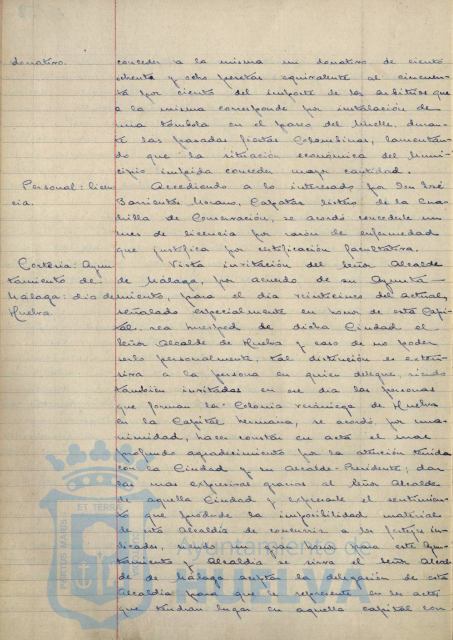 donativo.
conceder a la misma un donativo de ciento
ochenta y ocho pesetas equivalente al cincuen-
ta por ciento del importe de los arbitrios que
a la misma corresponde por instalación de
una tómbola en el paseo del Muelle, duran-
te las pasadas fiestas Colombinas, lamentan-
do que la situación económica del Muni-
cipio impida conceder mayor cantidad.
Personal: licen-
cia.
Accediendo a lo interesado por Don José
Barrientos Morano, Capataz listero de la Cua-
drilla de Conservación, se acordó concederle un
mes de licencia por razón de enfermedad
que justifica por certificación facultativa.
Cortesía: Ayun-
tamiento de
Málaga: día de
Huelva.
Vista invitación del Señor Alcalde
de Málaga, por acuerdo de su Ayunta-
miento, para el día veintecinco del actual,
señalado especialmente en honor de esta Capi-
tal, sea huesped de dicha Ciudad el
Señor Alcalde de Huelva y caso de no poder
serlo personalmente, tal distinción es exten-
siva a la persona en quien delegue, siendo
también invitadas en ese día las personas
que forman la Colonia veraniega de Huelva
en la Capital hermana, se acordó, por una-
nimidad, hacer constar en acta el mas
profundo agradecimiento por la atención tenida
con la Ciudad y su Alcalde-Presidente; dar
las mas expresivas gracias al Señor Alcalde
de aquella Ciudad y expresarle el sentimien-
to que produce la imposibilidad material
de esta Alcaldía de concurrir a los festejos in-
dicados, siendo un gran honor para este Ayun-
tamiento y Alcaldía se sirva el Señor Alcal-
de de Málaga aceptar la delegación de esta
Alcaldía para que le represente en los actos
que tendrán lugar en aquella capital con
Ayuntamiento de
HUELVA